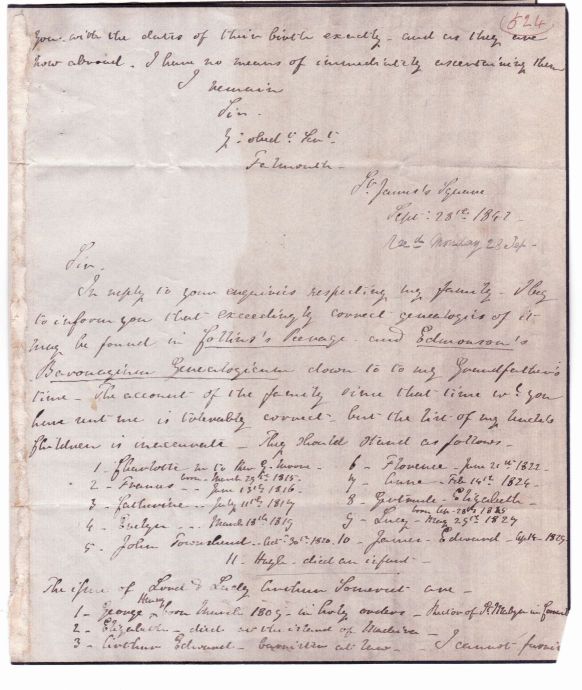 524
you with the dates of their birth exactly - and as they are
now abroad. I have no means of immediately ascertaining them
I remain
Sir.
Yr: obedt: Servt:
Falmouth -
St James's Square
Sept: 28th 1842 -
Sir.
In reply to your enquiries respecting my family - I beg
to inform you that exceedingly correct genealogies of it
may be found in Collins's Peerage - and Edmonson's
Baronagium Genealogicum down to to my Grandfather's
time - The account of the family since that time wh: you
have sent me is tolerably correct - but the list of my Uncle's
Children is inaccurate - They should stand as follows -
1 - Charlotte m to Moore - 6 - Florence - June 21st 1822 -
2 - Frances - June 13th 1816 - 7 - Anne - Feb 14th 1824 -
3 - Catherine - July 11th 1817 8 - Gertrude - Elizabeth -
4 - Evelyn - March 18th 1819 9 - Lucy - May 25th 1827
5 - John Townshend - Oct: 30th 1820. 10 - James - Edward - 1829
11 - Hugh - died an infant -
The issue of Lord & Lady Arthur Somerset are -
1 - George Henry born March 1809 - in holy orders - Rector of St Mabyn in Cornwall
2 - Elizabeth - died at the island of Madeira -
3 - Arthur Edward - barrister at law - I cannot furnish